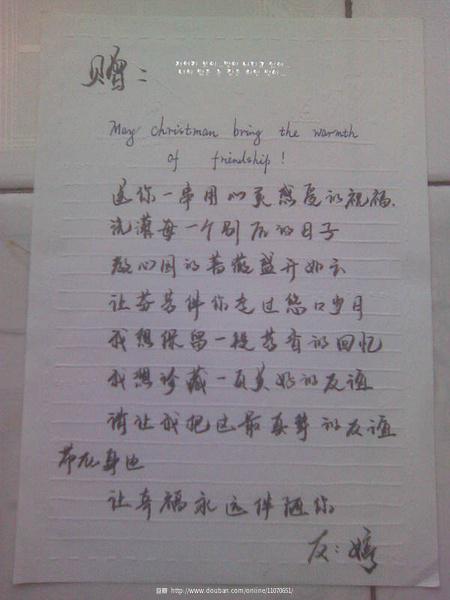 赠：
May christman bring the warmth
of friendship!
送你一串用心灵感受的祝福.
洗濯每一个别后的日子
教心园的蔷薇盛开如云
让芬芳伴你走过悠悠岁月
我想保留一段芳香的回忆
我想珍藏一页美好的友谊
请让我把这最真挚的友谊
带在身边
让幸福永远伴随你
友：嫦
豆瓣 http://www.douban.com/online/11070651/